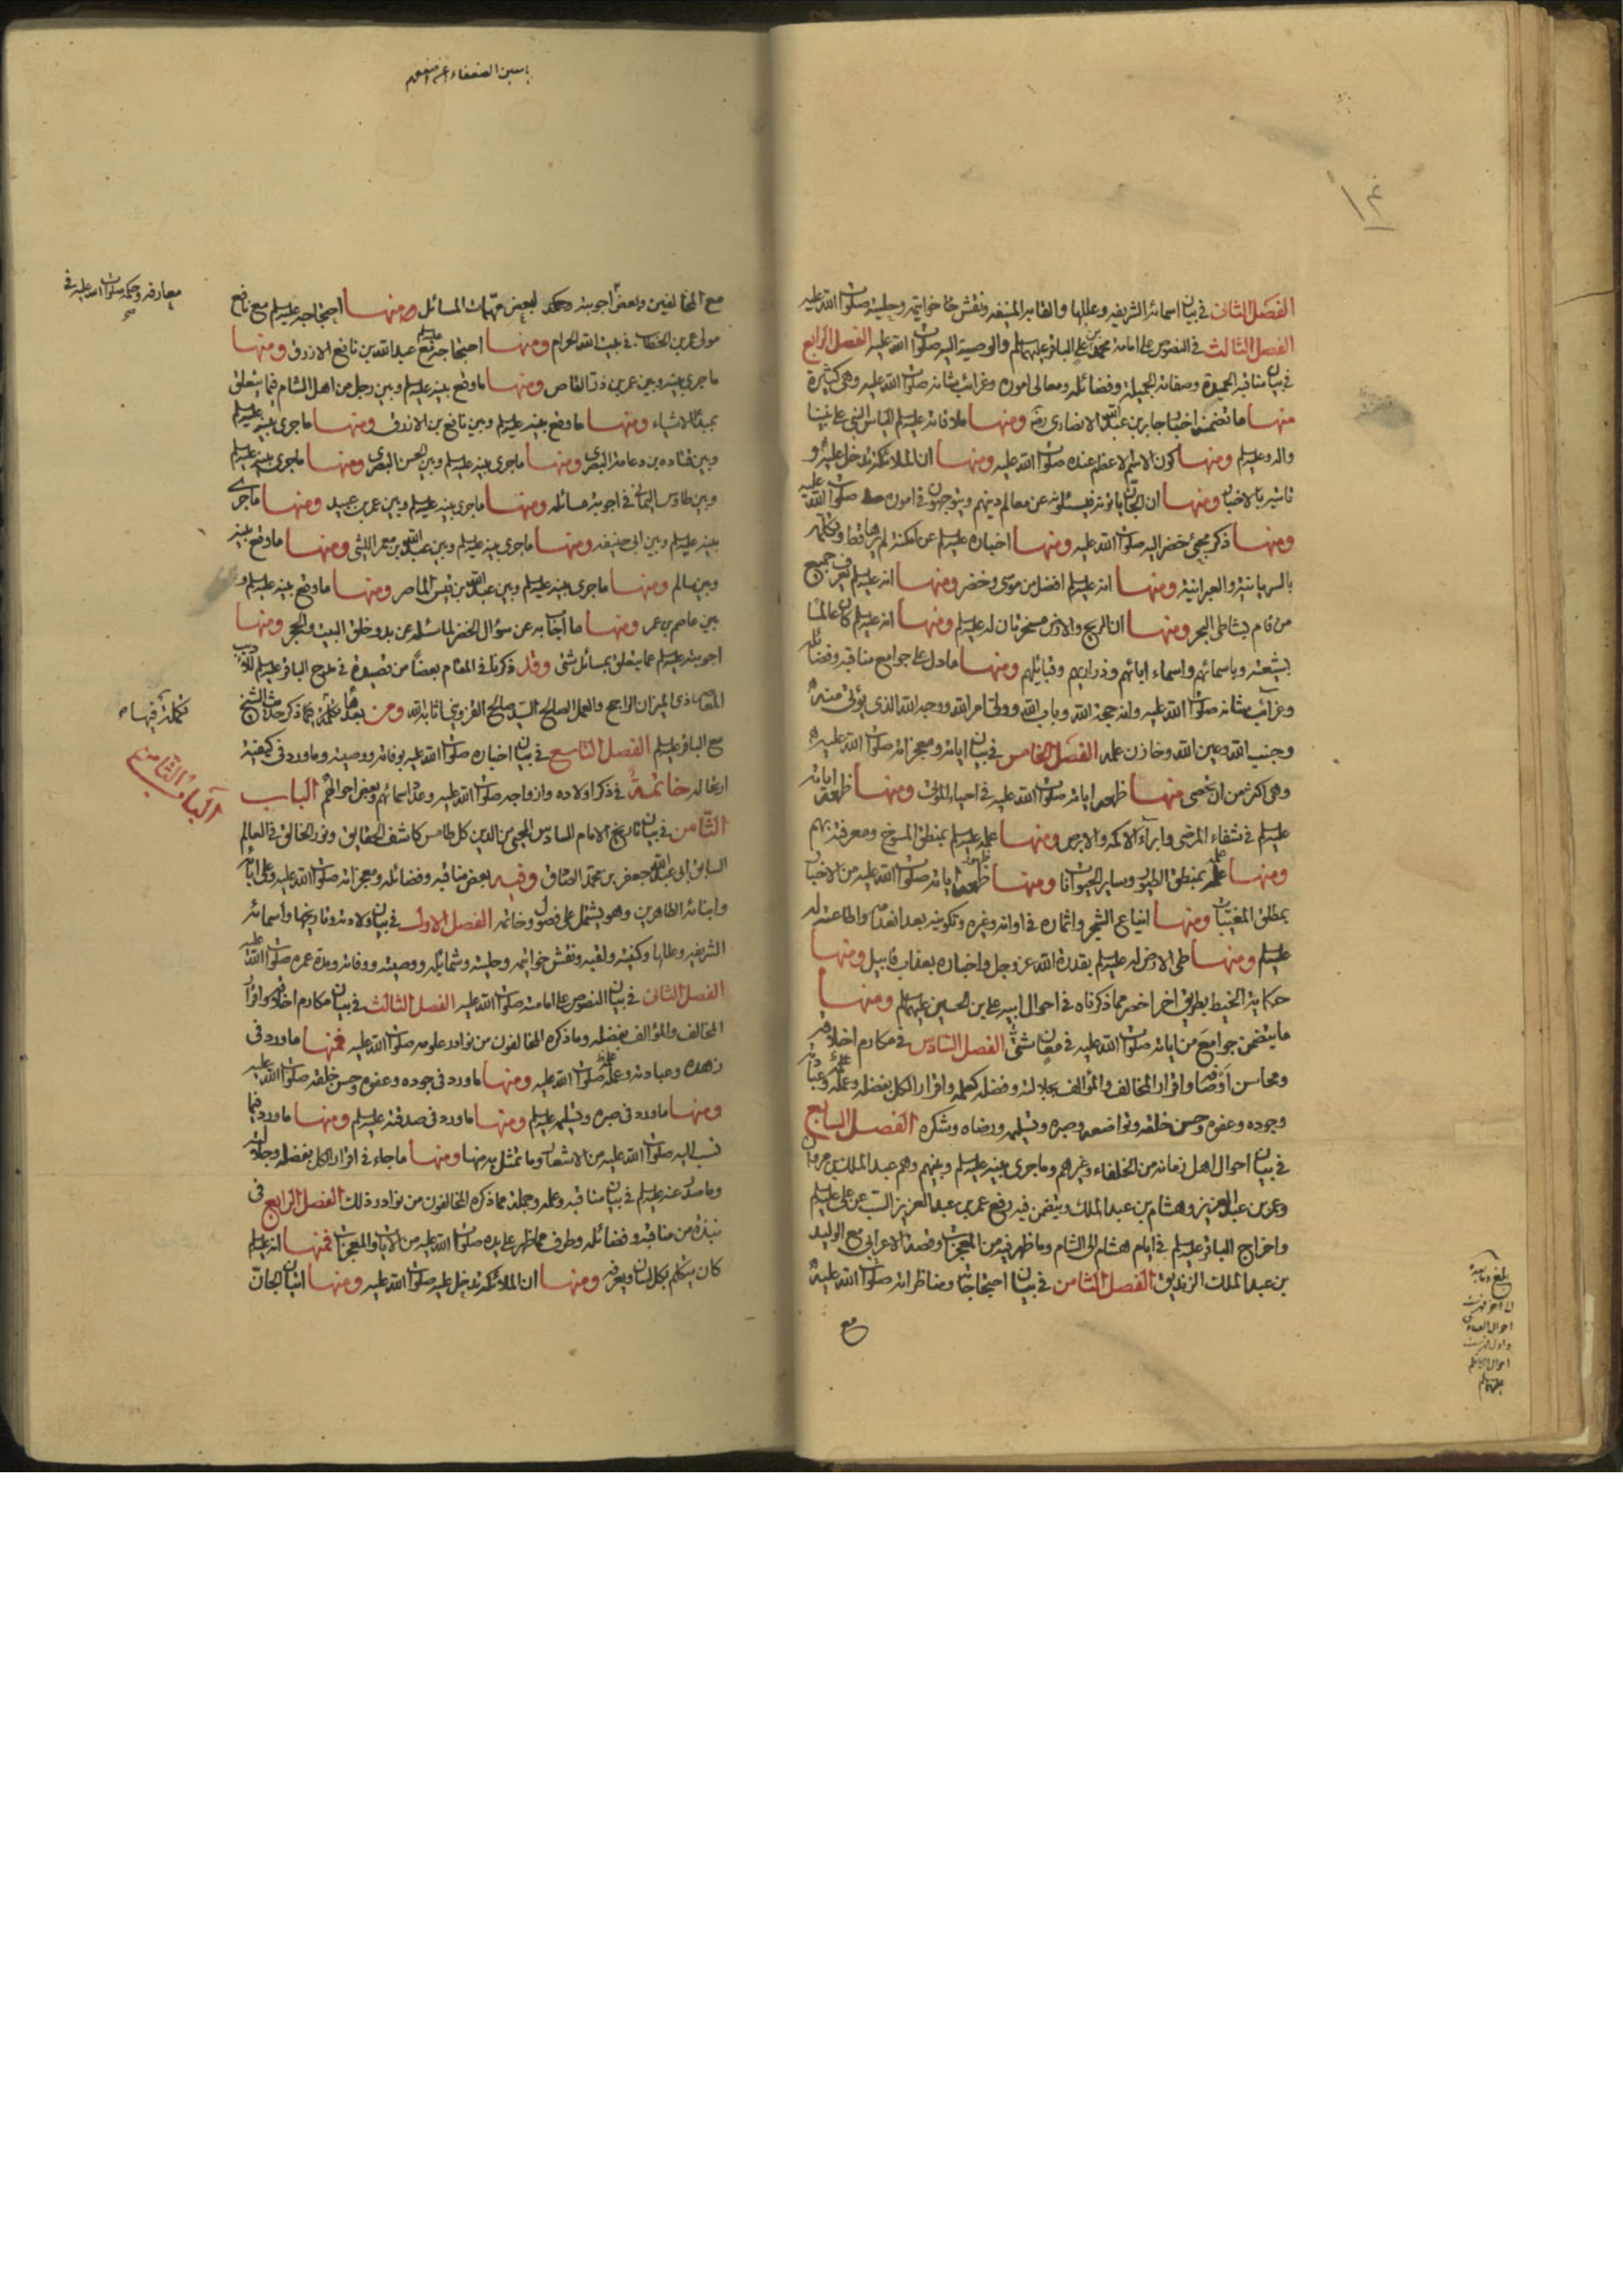 الفصل الثاني في بيان اسمائه الشريفه وعللها والقابه المنيفه ونقش خواتيمه وحليته صلوات الله عليه
الفصل الثالث في النصوص على امامة محمد بن علي الباقر عليهما السلم والوصية اليه صلوات الله عليه الفصل الرابع
في بيان مناقبه الحميدة وصفاته الجميلة وفضائله ومعالى اموره وغرائب شانه صلوات الله عليه وهى كثيرة
منها ما تضمن اخبار جابر بن عبد الله الانصارى ومنها ملاقاته عليه السلم الياس النبي على نبينا
واله وعليه السلم ومنها كون الاسم الاعظم عنده صلوات الله عليه ومنها ان الملائكة تدخل عليه و
تاتيه بالاخبار ومنها ان الجان ياتونه فيسئلونه عن معالم دينهم ويتوجهون في اموره صلوات الله عليه
ومنها ذكر مجئ خضر اليه صلوات الله عليه ومنها اخباره عليه السلم عن امكنة لم يرها قط وتكلمه
بالسريانية والعبرانية ومنها انه عليه السلم افضل من موسى وخضر ومنها انه عليه السلم يعرف جميع
من قام بشاطى البحر ومنها ان الريح والارض مسخرتان له عليه السلم ومنها انه عليه السلم كان عالما
بشيعته وباسمائهم واسماء ابائهم وذراريهم وقبائلهم ومنها ما دل على جوامع مناقبه وفضائله
وغرائب شانه صلوات الله عليه وانه حجة الله وباب الله وولى امر الله ووجه الله الذى يؤتى منه
وجنب الله وعين الله وخازن علمه الفصل الخامس في بيان اياته ومعجزاته صلوات الله عليه
وهى اكثر من ان تحصى منها ظهور اياته صلوات الله عليه في احياء الموتى ومنها ظهور اياته
عليه السلم في شفاء المرضى وابراء الاكمه والابرص ومنها علمه عليه السلم بمنطق المسوخ ومعرفته بهم
ومنها علمه بمنطق الطيور وساير الحيوانات ومنها ظهور اياته صلوات الله عليه من الاخبار
بمطلق المغيبات ومنها ايناع الشجر واثماره في اوانه وغيره وتكوينه بعد انعدامه واطاعته له
عليه السلم ومنها طى الارض له عليه السلم بقدرة الله عز وجل واخباره بعقاب قابيل ومنها
حكاية الخيط بطريق اخر اخصر مما ذكرناه في احوال ابيه على بن الحسين عليهما السلم ومنها
ما يتضمن جوامع من اياته صلوات الله عليه في معان شتى الفصل السادس في مكارم اخلاقه
ومحاسن اوصافه واقرار المخالف والمؤالف بجلالته وفضله كعلمه واقرار الكل بفضله وعلمه وعبادته
وجوده وعفوه وحسن خلقه وتواضعه وصبره وتسليمه ورضاه وشكره الفصل السابع
في بيان احوال اهل زمانه من الخلفاء وغيرهم وما جرى بينه عليه السلم وبينهم وهم عبد الملك بن مروان
وعمر بن عبد العزيز وهشام بن عبد الملك ويتضمن فيه رفع عمر بن عبد العزيز السب عن على عليه السلم
واخراج الباقر عليه السلم في ايام هشام الى الشام وما ظهر فيه من المعجزات وقصة الاعرابى مع الوليد
بن عبد الملك الزنديق الفصل الثامن في بيان احتجاجاته ومناظراته صلوات الله عليه
مع
بلغ
احوال
مع المخالفين وبعض اجوبته وحكمه لبعض مهمات المسائل ومنها احتجاجه عليه السلم مع نافع
معارفه وحكمه صلوات الله عليه في
مولى عمر بن الخطاب في بيت الله الحرام ومنها احتجاجه مع عبد الله بن نافع الازرق ومنها
ما جرى بينه وبين عمر بن ذر القاص ومنها ما وقع بينه عليه السلم وبين رجل من اهل الشام فيما يتعلق
بمبدأ الاشياء ومنها ما وقع بينه عليه السلم وبين نافع بن الازرق ومنها ما جرى بينه عليه السلم
وبين قتاده بن دعامة البصرى ومنها ما جرى بينه عليه السلم وبين الحسن البصرى ومنها ما جرى بينه عليه السلم
وبين طاوس اليمانى في اجوبة مسائله ومنها ما جرى بينه عليه السلم وبين عمرو بن عبيد ومنها ما جرى
بينه عليه السلم وبين ابى حنيفه ومنها ما جرى بينه عليه السلم وبين عبد الله بن معمر الليثى ومنها ما وقع بينه
وبين سالم ومنها ما جرى بينه عليه السلم وبين عبد الله بن قيس الماصر ومنها ما وقع بينه عليه السلم و
بين عاصم بن عمر ومنها ما اجاب به عن سؤال الخضر لما سئله عن بدو خلق البيت والحجر ومنها
اجوبته عليه السلم عما يتعلق بمسائل شتى وقد ذكرنا في المقام بعضا من قصيدة في مدح الباقر عليه السلم للاديب
ذى الميزان الراجح والعمل الصالح السيد صالح القزوينى اثابه الله ومن بعدها تكملة فيما ذكر
تكملة فيها
مع الباقر عليه السلم الفصل التاسع في بيان اخباره صلوات الله عليه بوفاته ووصيته وما ورد في كيفية
ارتحاله خاتمة في ذكر اولاده وازواجه صلوات الله عليه وعدد اسمائهم وبعض احوالهم الباب
الباب الثامن
الثامن في بيان تاريخ الامام السادس المحيى من الدين كل طامس كاشف الحقايق ونور الخالق في العالم
السابق ابى عبد الله جعفر بن محمد الصادق وفيه بعض مناقبه وفضائله ومعجزاته صلوات الله عليه وعلى ابائه
وابنائه الطاهرين وهو يشتمل على فصول وخاتمه الفصل الاول في بيان ولادته وتاريخها واسمائه
الشريفه وعللها وكنيته ولقبه ونقش خواتيمه وحليته وشمائله ووصيته ووفاته ومدة عمره صلوات الله عليه
الفصل الثاني في بيان النصوص على امامته صلوات الله عليه الفصل الثالث في بيان مكارم اخلاقه واقرار
المخالف والمؤالف بفضله وما ذكره المخالفون من نوادر علومه صلوات الله عليه فمنها ما ورد في
زهده وعبادته وعلمه صلوات الله عليه ومنها ما ورد في جوده وعفوه وحسن خلقه صلوات الله عليه
ومنها ما ورد في صبره وتسليمه عليه السلم ومنها ما ورد في صدقته عليه السلم ومنها ما ورد فيما
نسب اليه صلوات الله عليه من الاشعار وما تمثل به منها ومنها ما جاء في اقرار الكل بفضله وجلالته
وما صدر عنه عليه السلم في بيان مناقبه وعلمه وجملة مما ذكره المخالفون من نوادر ذلك الفصل الرابع في
نبذة من مناقبه وفضائله وطرف مما ظهر على يده صلوات الله عليه من الايات والمعجزات فمنها انه عليه السلم
كان يتكلم بكل لسان ويعرفه ومنها ان الملائكة تدخل عليه صلوات الله عليه ومنها اتيان الجان